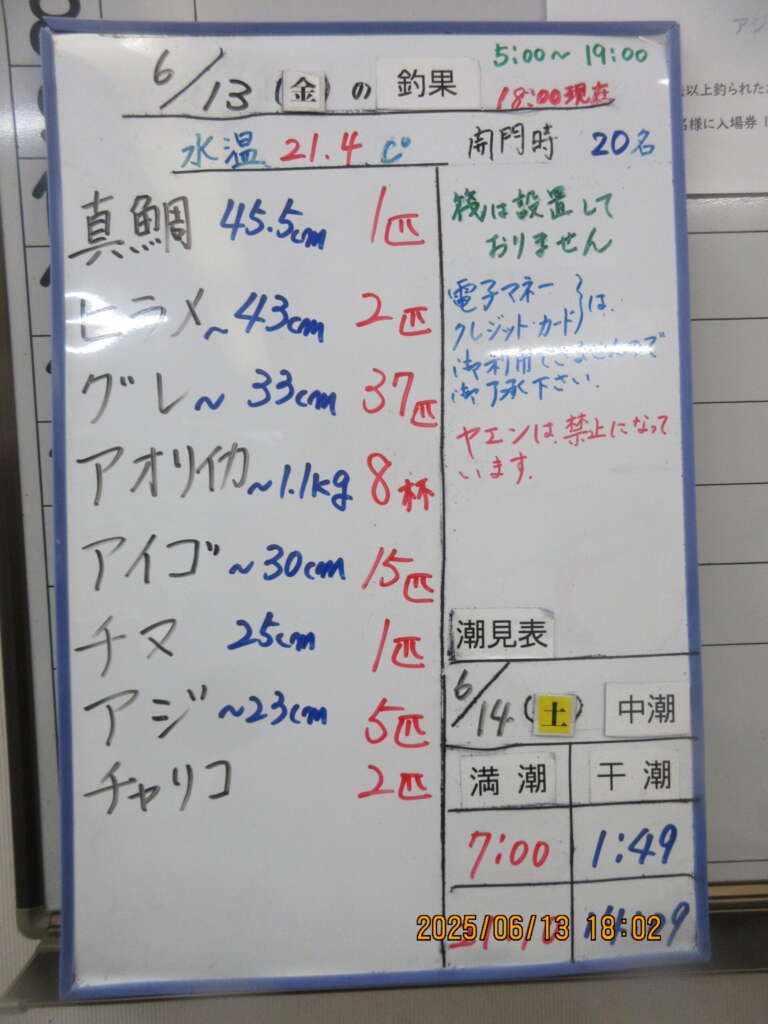 6/13(金)の釣果
5:00～19:00
18:00現在
水温 21.4 C°
開門時 20名
真鯛 45.5cm 1匹
ヒラメ ～43cm 2匹
グレ ～33cm 37匹
アオリイカ ～1.1kg 8杯
アイゴ ～30cm 15匹
チヌ 25cm 1匹
アジ ～23cm 5匹
チャリコ 2匹
筏は設置して
おりません
電子マネー
クレジット・カード}は、
御利用できませんので
御了承下さい.
ヤエンは禁止になって
います.
潮見表
6/14(土) 中潮
満潮 干潮
7:00 1:49
2025/06/13 18:02
アジ
以上釣られた
名様に入場券